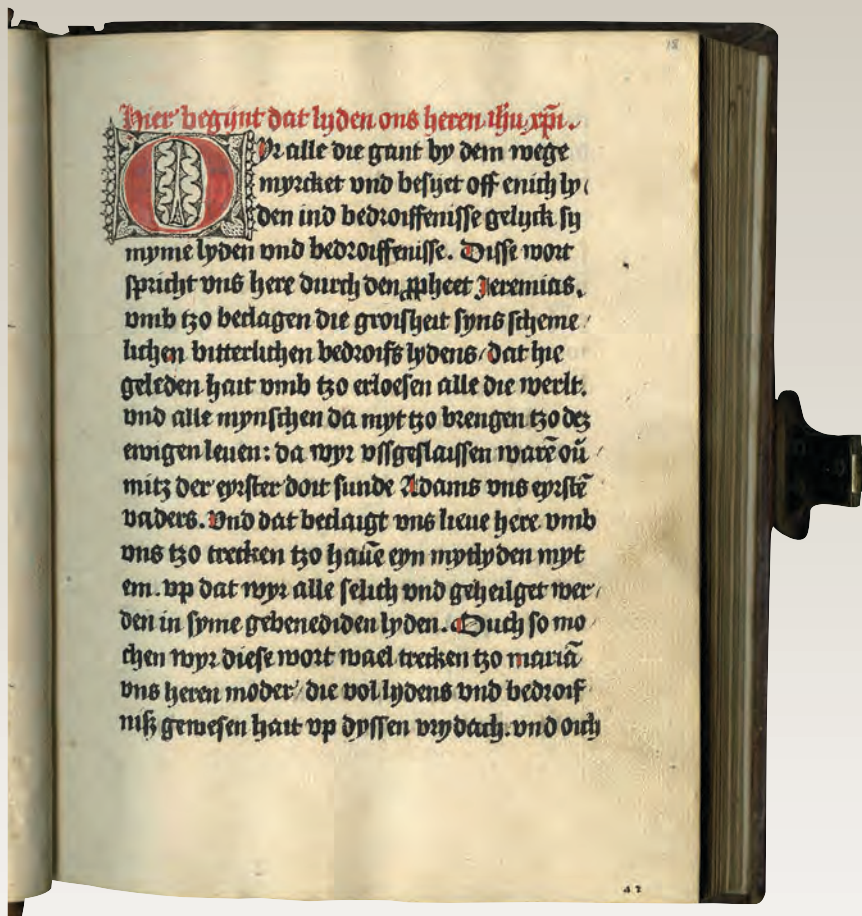 18
Hier begijnt dat lyden ons heren ihu xpi.
O Yr alle die gant by dem wege
myrcket vnd besyet off enich ly
den ind bedroiffenisse gelyck sy
myme lyden vnd bedroiffenisse. Disse wort
spricht vns here durch den ppheet Jeremias.
vmb tzo beclagen die groisheit syns scheme
lichen bitterlichen bedroifs lydens/ dat hie
geleden hait vmb tzo erloesen alle die werlt.
vnd alle mynschen da myt tzo brengen tzo dez
ewigen leuen: da wyr vssgeslaissen warē ou᷑
mitz der eyrster doit sunde Adams vns eyrstē
vaders. Vnd dat beclaigt vns lieue here vmb
vns tzo trecken tzo hauē eyn mytlyden myt
em. vp dat wyr alle selich vnd geheilget wer
den in syme gebenediden lyden. Ouch so mo
chen wyr diese wort wael trecken tzo mariā
vns heren moder/ die vol lydens vnd bedroif
niß gewesen hait vp dyssen vrydach. vnd oich